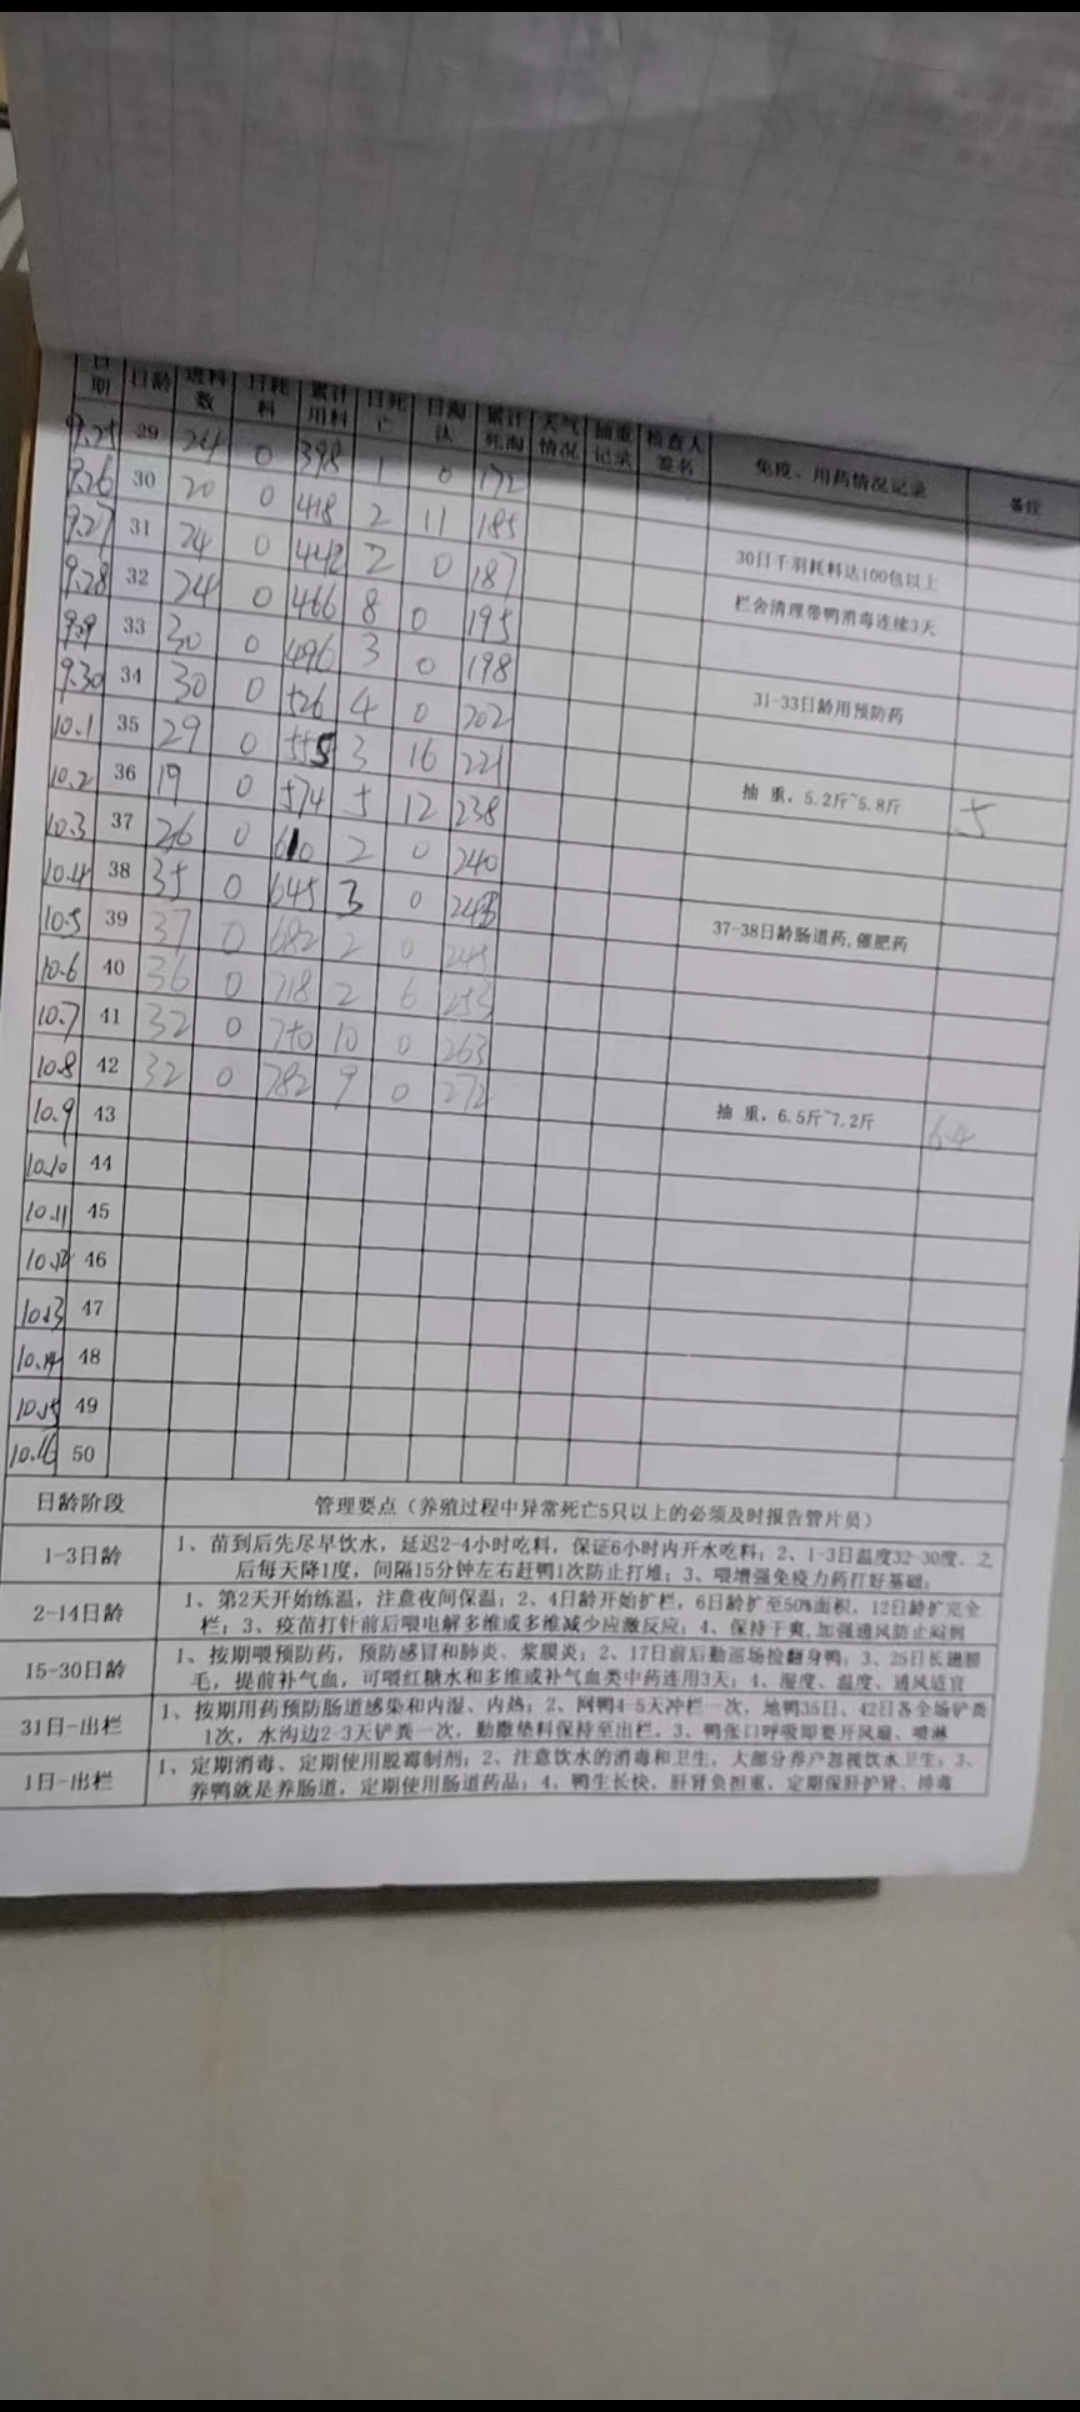 日期 日龄 进料数 日耗料 累计用料 日死亡 日淘汰 累计死淘 天气情况 抽重记录 检查人签名 免疫、用药情况记录 备注
9.25 29 24 0 398 1 0 172
9.26 30 20 0 418 2 11 185
9.27 31 24 0 442 2 0 187 30日千羽耗料达100包以上
9.28 32 24 0 466 8 0 195 栏舍清理带鸭消毒连续3天
9.29 33 30 0 496 3 0 198
9.30 34 30 0 526 4 0 202 31-33日龄用预防药
10.1 35 29 0 555 3 16 221
10.2 36 19 0 574 5 12 238 抽 重，5.2斤~5.8斤 5
10.3 37 26 0 610 2 0 240
10.4 38 35 0 645 3 0 243
10.5 39 37 0 682 2 0 245 37-38日龄肠道药,催肥药
10.6 40 36 0 718 2 6 253
10.7 41 32 0 750 10 0 263
10.8 42 32 0 782 9 0 272
10.9 43 抽 重，6.5斤~7.2斤 6.4
10.10 44
10.11 45
10.12 46
10.13 47
10.14 48
10.15 49
10.16 50
日龄阶段 管理要点（养殖过程中异常死亡5只以上的必须及时报告管片员）
1-3日龄 1、苗到后先尽早饮水，延迟2-4小时吃料，保证6小时内开水吃料；2、1-3日温度32-30度。之
后每天降1度，间隔15分钟左右赶鸭1次防止打堆；3、喂增强免疫力药打好基础；
2-14日龄 1、第2天开始练温，注意夜间保温；2、4日龄开始扩栏，6日龄扩至50%面积，12日龄扩完全
栏；3、疫苗打针前后喂电解多维或多维减少应激反应；4、保持干爽,加强通风防止闷倒
15-30日龄 1、按期喂预防药，预防感冒和肺炎、浆膜炎；2、17日前后勤巡场捡翻身鸭；3、25日长翅膀
毛，提前补气血，可喂红糖水和多维或补气血类中药连用3天；4、湿度、温度、通风适宜
31日-出栏 1、按期用药预防肠道感染和内湿、内热；2、网鸭4-5天冲栏一次，地鸭35日、42日各全场铲粪
1次，水沟边2-3天铲粪一次，勤撒垫料保持至出栏。3、鸭张口呼吸即要开风扇、喷淋
1日-出栏 1、定期消毒、定期使用脱霉制剂；2、注意饮水的消毒和卫生，大部分养户忽视饮水卫生；3、
养鸭就是养肠道，定期使用肠道药品；4、鸭生长快，肝肾负担重，定期保肝护肾、排毒